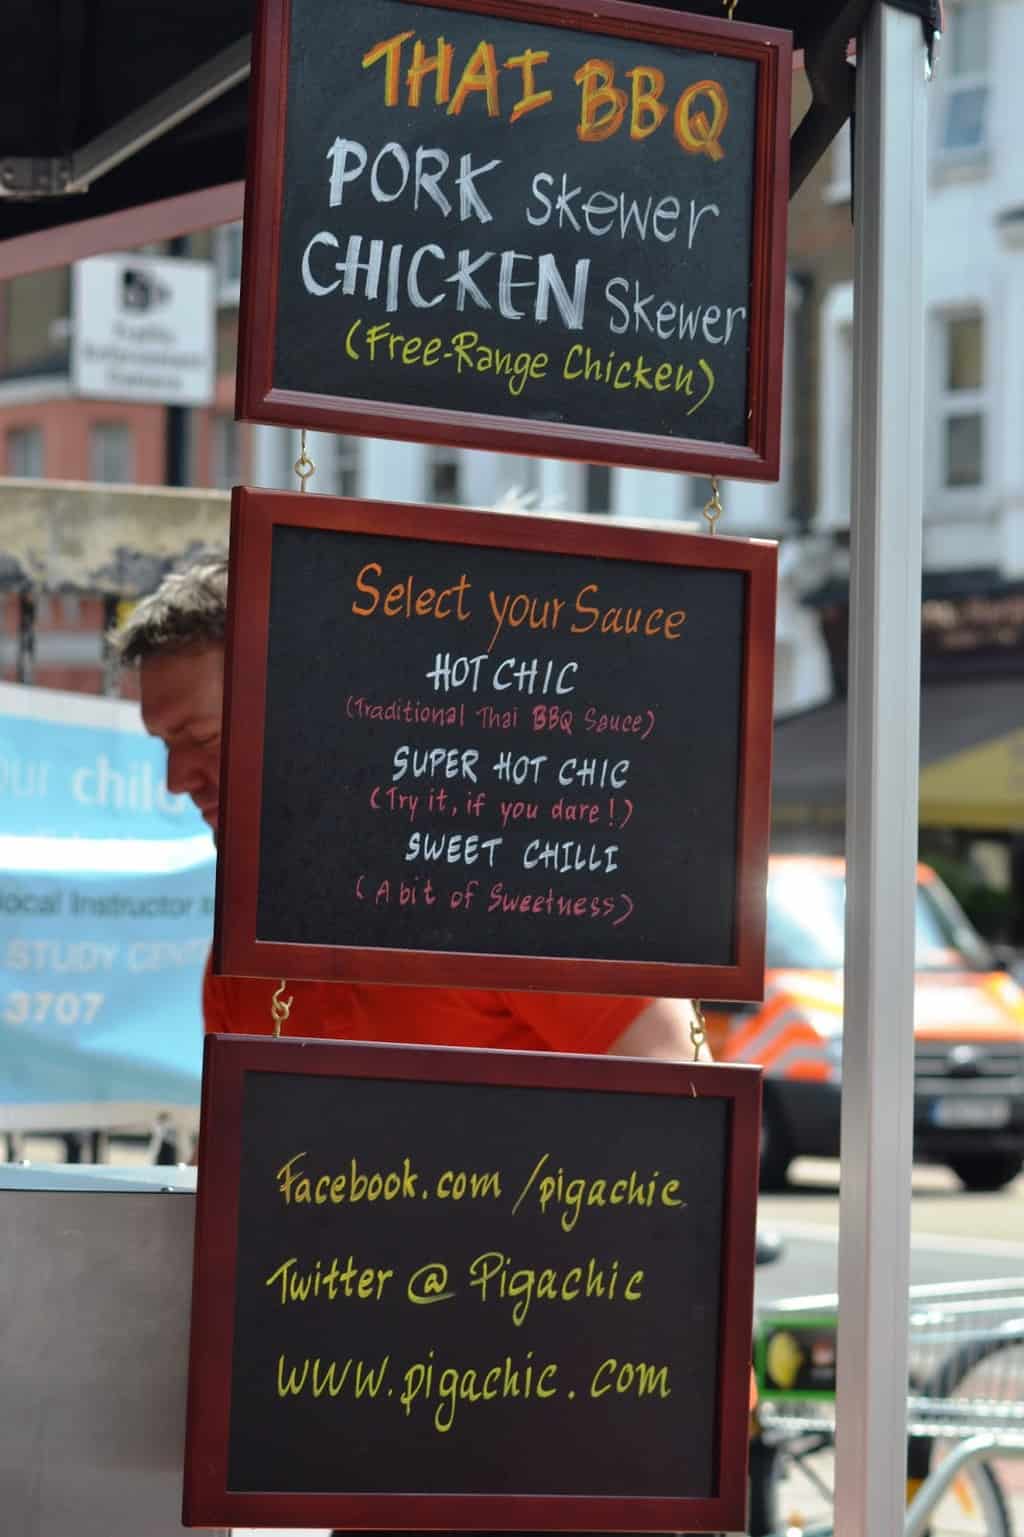 THAI BBQ
PORK Skewer
CHICKEN Skewer
(Free-Range Chicken)
Select your Sauce
HOT CHIC
(Traditional Thai BBQ Sauce)
SUPER HOT CHIC
(Try it, if you dare!)
SWEET CHILLI
(A bit of Sweetness)
Facebook.com/pigachic
Twitter @ Pigachic
www.pigachic.com
Traffic
Enforcement
Camera
our child
local Instructor
STUDY CENT
3707